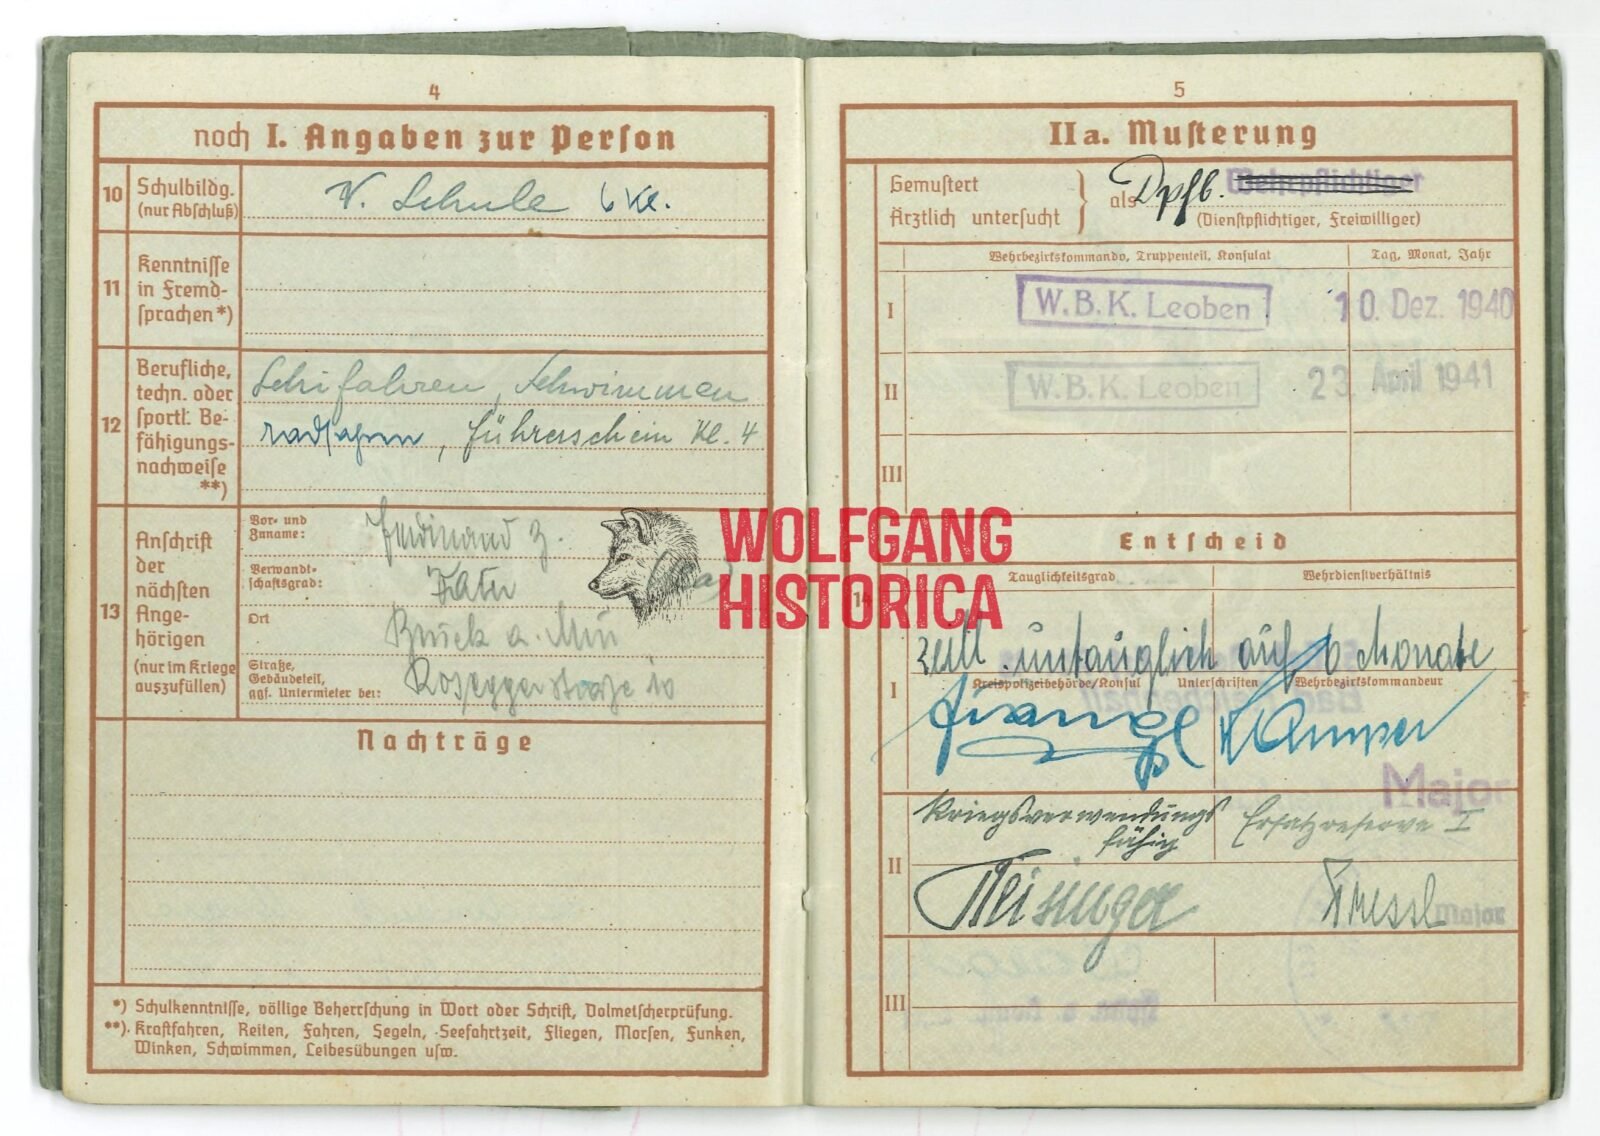 4
noch I. Angaben zur Person
10
Schulbildg.
(nur Abschluß)
V. Schule 6 Kl.
11
Kenntnisse
in Fremd-
sprachen *)
12
Berufliche,
techn. oder
sportl. Be-
fähigungs-
nachweise
**)
Schifahren, Schwimmen
radfahren, Führerschein Kl. 4
13
Anschrift
der
nächsten
Ange-
hörigen
(nur im Kriege
auszufüllen)
Vor- und
Zuname:
Ferdinand Z.
Verwandt-
schaftsgrad:
Vater
Ort
Bruck a. Mur
Straße,
Gebäudeteil,
ggf. Untermieter bei:
Roseggerstraße 10
Nachträge
*) Schulkenntnisse, völlige Beherrschung in Wort oder Schrift, Dolmetscherprüfung.
**) Kraftfahren, Reiten, Fahren, Segeln, Seefahrtzeit, Fliegen, Morsen, Funken,
Winken, Schwimmen, Leibesübungen usw.
WOLFGANG
HISTORICA
5
IIa. Musterung
Gemustert
Ärztlich untersucht
als Dpfl. Wehrpflichtiger
(Dienstpflichtiger, Freiwilliger)
Wehrbezirkskommando, Truppenteil, Konsulat
Tag, Monat, Jahr
I
W.B.K. Leoben
10. Dez. 1940
II
W.B.K. Leoben
23. April 1941
III
Entscheid
14
Tauglichkeitsgrad
Wehrdienstverhältnis
I
zeitl. untauglich auf 6 Monate
Kreispolizeibehörde/Konsul
Unterschriften
Wehrbezirkskommandeur
Major
II
Kriegsverwendungs
fähig
Ersatzreserve I
Major
III